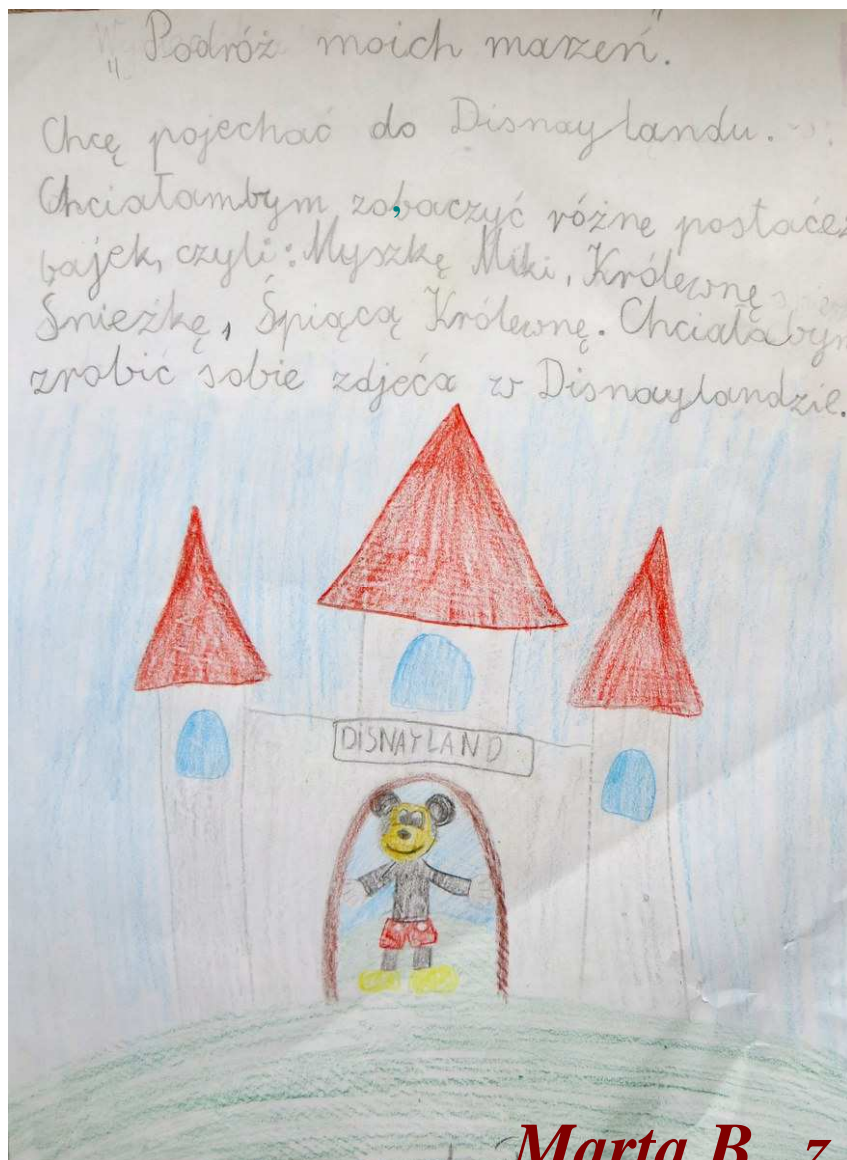 "Podróż moich marzeń".
Chcę pojechać do Disnaylandu.
Chciałambym zobaczyć różne postaće z
bajek, czyli: Myszkę Miki, Królewnę
Śnieżkę, Śpiącą Królewnę. Chciałabym
zrobić sobie zdjęća w Disnaylandzie.
DISNAYLAND
Marta B. 7